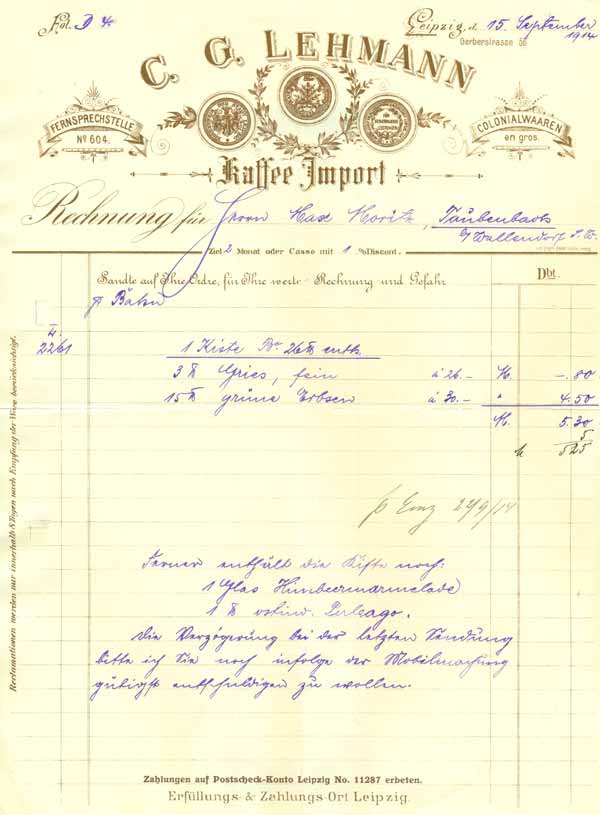 Fol. D 4
Leipzig, d. 15. September 1914
Gerberstrasse 56
C. G. LEHMANN
FERNSPRECHSTELLE
No 604.
COLONIALWAAREN
en gros.
Kaffee Import
Rechnung für Herrn Max Moritz, Taubenbach
b/Wallendorf S. M.
Ziel 2 Monat oder Casse mit 1 % Discont.
Sandte auf Ihre Ordre, für Ihre werte Rechnung und Gefahr
Dbt.
p Bahn
4.
2261
1 Kiste Bo 26 ℔ enth.
3 ℔ Gries, fein à 26.– M. –.80
15 ℔ grüne Erbsen à 30.– " 4.50
M. 5.30
5
525
27/9/14
Ferner enthält die Kiste noch:
1 Glas Himbeermarmelade
1 ℔ ostind. Perlsago.
Die Verzögerung bei der letzten Sendung
bitte ich Sie noch infolge der Mobilmachung
gütigst entschuldigen zu wollen.
Reclamationen werden nur innerhalb 8 Tagen nach Empfang der Ware berücksichtigt.
Zahlungen auf Postscheck-Konto Leipzig No. 11287 erbeten.
Erfüllungs- & Zahlungs-Ort Leipzig.